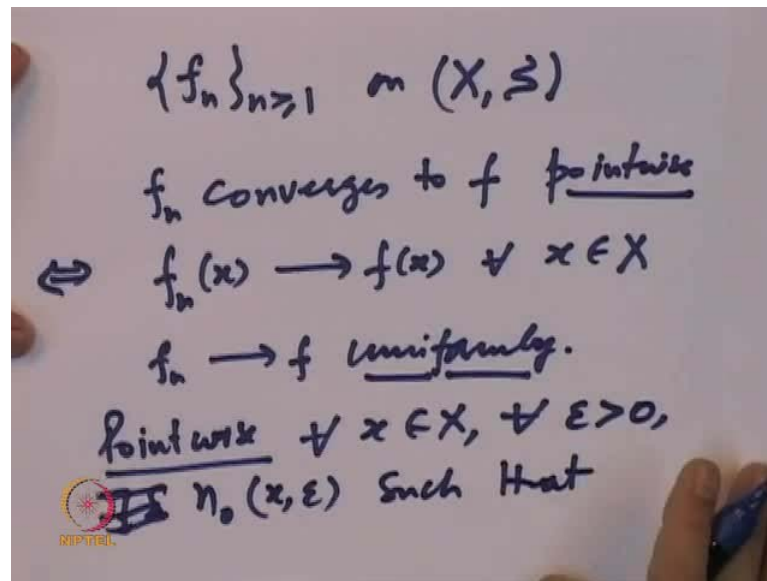 {fn}n≥1 on (X, S)
fn converges to f pointwise
⇔ fn(x) → f(x) ∀ x ∈ X
fn → f uniformly.
Pointwise ∀ x ∈ X, ∀ ε > 0,
n₀(x, ε) such that
NPTEL